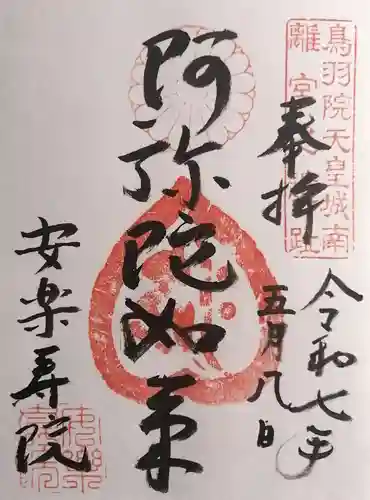 鳥羽院天皇城南
離宮
趾
奉拝
令和七年
五月八日
阿弥陀如来
安楽寿院